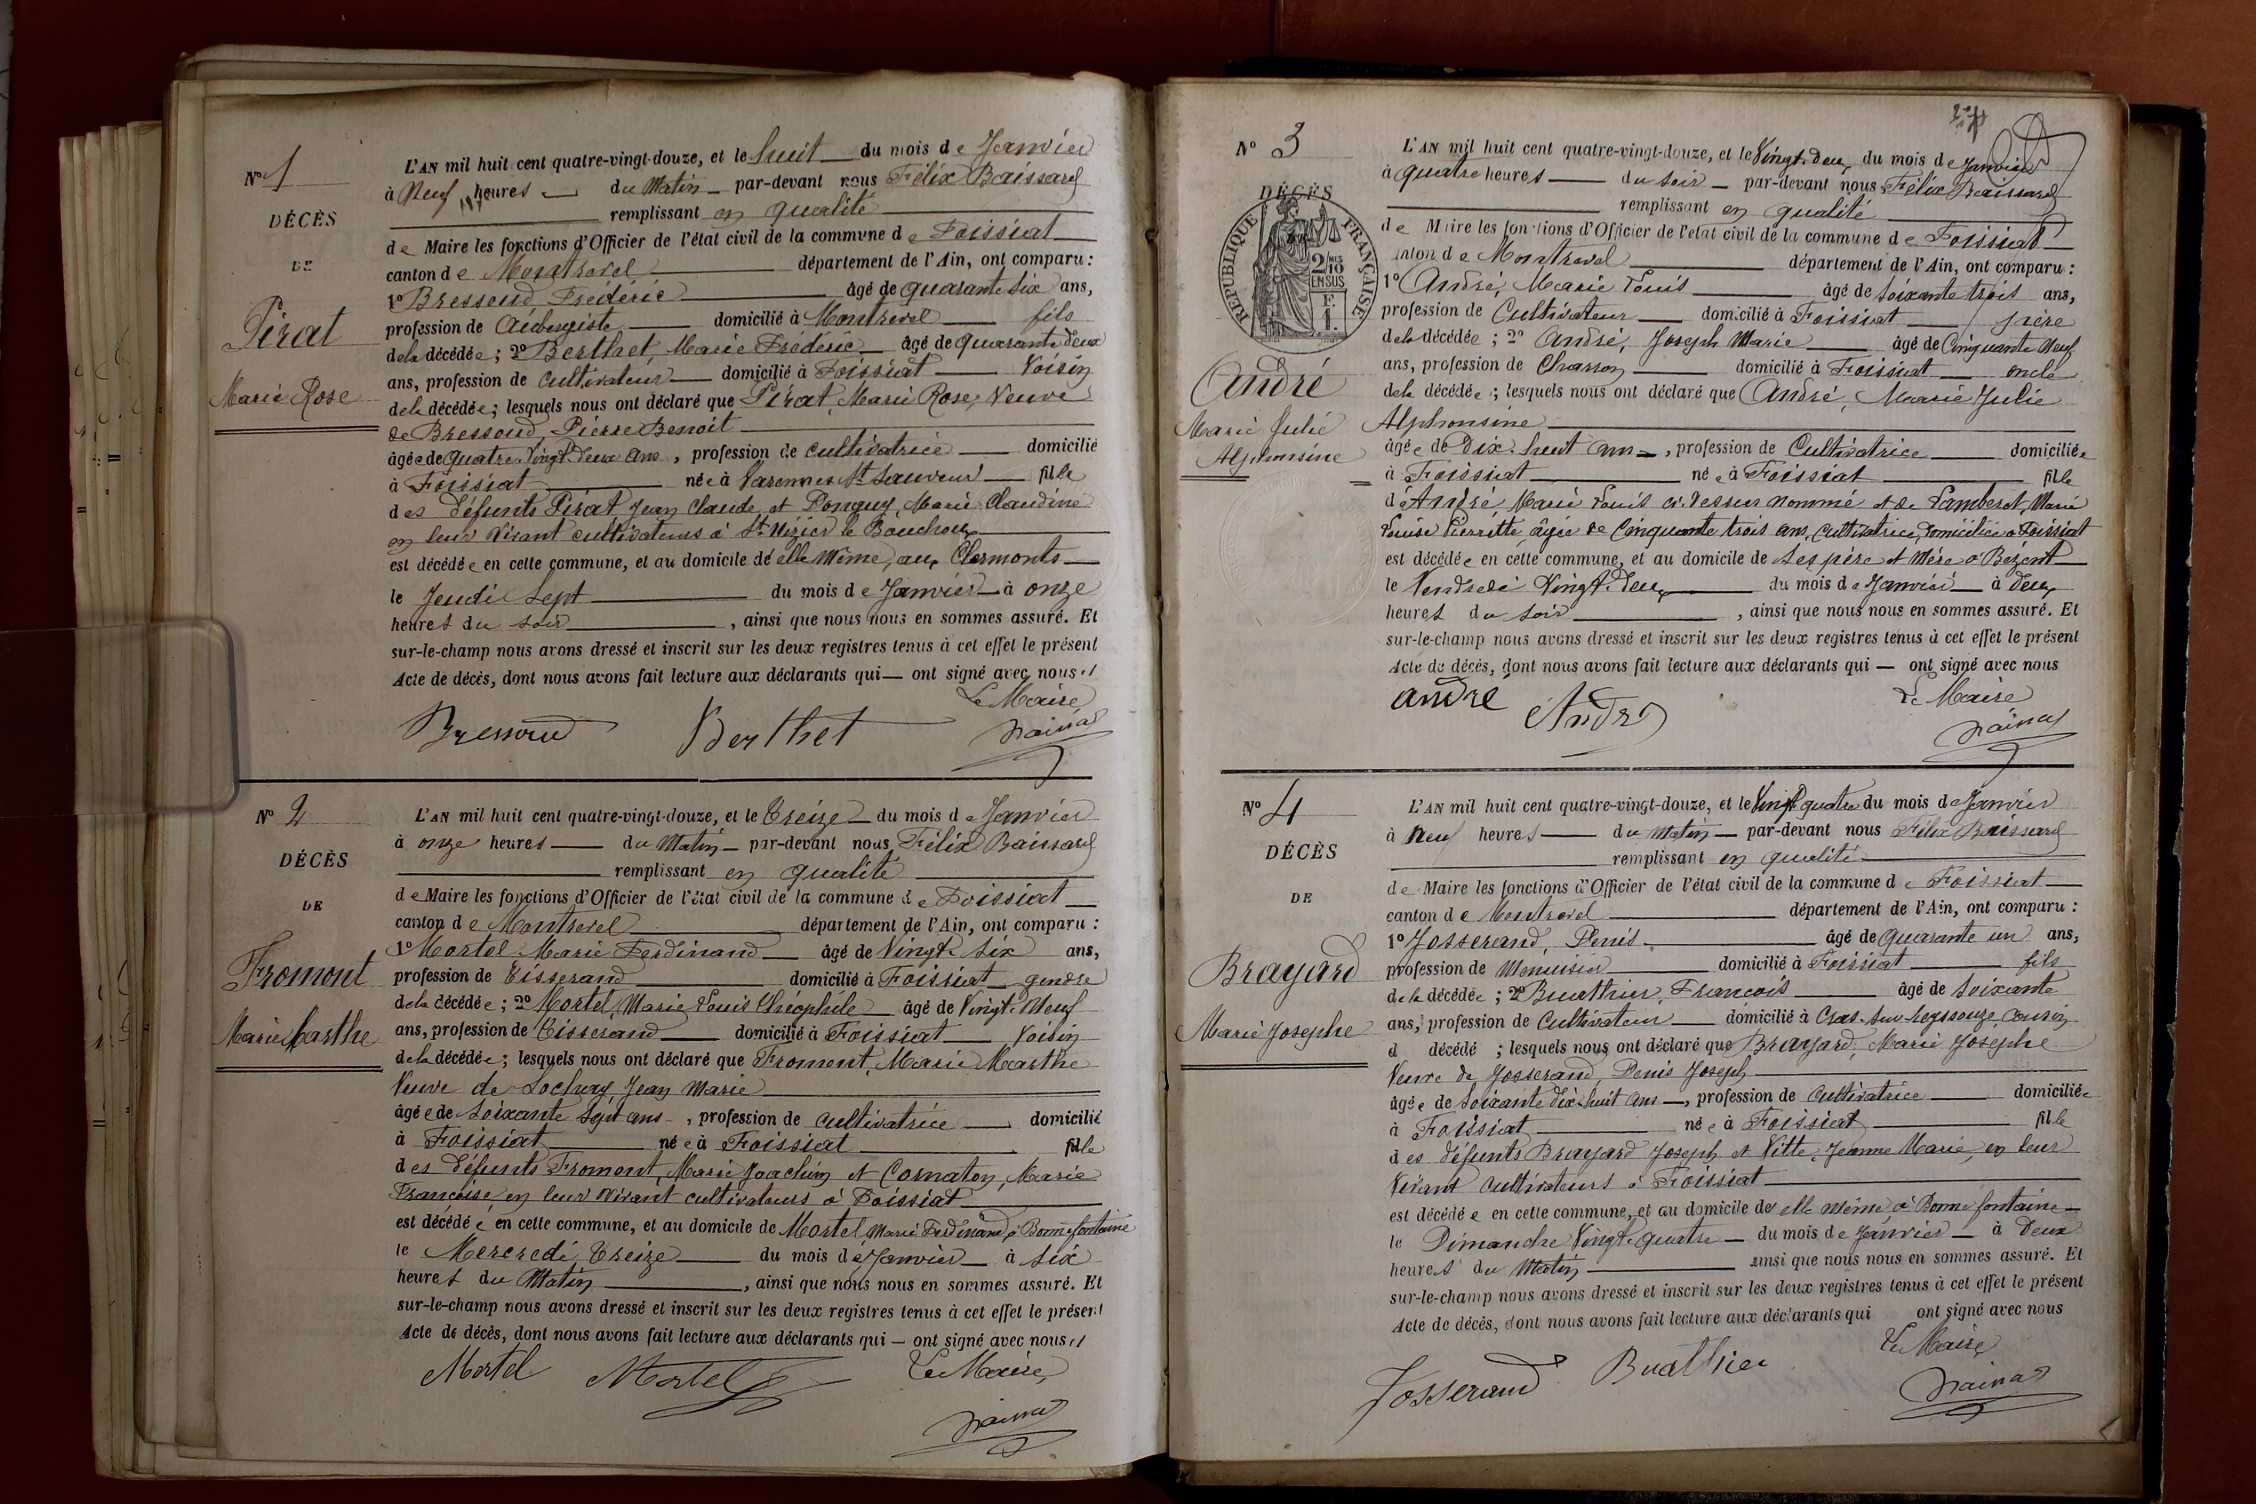 N° 1
DÉCÈS
DE
Pirat
Marie Rose
L'AN mil huit cent quatre-vingt-douze, et le huit du mois de Janvier
à Neuf heures du Matin par-devant nous Félix Baissard
remplissant en qualité
de Maire les fonctions d'Officier de l'état civil de la commune de Foissiat
canton de Montrevel département de l'Ain, ont comparu :
1° Bressoud Frédéric âgé de quarante six ans,
profession de Aubergiste domicilié à Montrevel fils
de la décédée ; 2° Berthet, Marie Frédéric âgé de quarante deux
ans, profession de cultivateur domicilié à Foissiat Voisin
de la décédée ; lesquels nous ont déclaré que Pirat, Marie Rose, Veuve
de Bressoud, Pierre Benoit
âgée de quatre Vingt Deux ans, profession de cultivatrice domicilié
à Foissiat née à Varennes St Sauveur fille
des défunts Pirat Jean Claude et Ponguy, Marie Claudine
en leur Vivant cultivateurs à St Nizier le Bouchoux
est décédée en cette commune, et au domicile de elle même, aux Clermonts
le Jeudi Sept du mois de Janvier à onze
heures du soir , ainsi que nous nous en sommes assuré. Et
sur-le-champ nous avons dressé et inscrit sur les deux registres tenus à cet effet le présent
Acte de décès, dont nous avons fait lecture aux déclarants qui — ont signé avec nous.
Le Maire
Bressoud Berthet
N° 2
DÉCÈS
DE
Fromont
Marie Marthe
L'AN mil huit cent quatre-vingt-douze, et le Treize du mois de Janvier
à onze heures du Matin par-devant nous Félix Baissard
remplissant en qualité
de Maire les fonctions d'Officier de l'état civil de la commune de Foissiat
canton de Montrevel département de l'Ain, ont comparu :
1° Mortel Marie Ferdinand âgé de Vingt Six ans,
profession de Tisserand domicilié à Foissiat gendre
de la décédée ; 2° Mortel, Marie Louis Théophile âgé de Vingt Neuf
ans, profession de Tisserand domicilié à Foissiat Voisin
de la décédée ; lesquels nous ont déclaré que Fromont, Marie Marthe
Veuve de Jean Marie
âgée de soixante sept ans, profession de cultivatrice domicilié
à Foissiat née à Foissiat fille
des défunts Fromont, Marie Joachim et Cornaton, Marie
Françoise, en leur vivant cultivateurs à Foissiat
est décédée en cette commune, et au domicile de Mortel Marie Ferdinand, à Bonnefontaine
le Mercredi Treize du mois de Janvier à six
heures du Matin , ainsi que nous nous en sommes assuré. Et
sur-le-champ nous avons dressé et inscrit sur les deux registres tenus à cet effet le présent
Acte de décès, dont nous avons fait lecture aux déclarants qui — ont signé avec nous
Mortel Mortel Le Maire
N° 3
DÉCÈS
RÉPUBLIQUE FRANÇAISE
2/10 EN SUS
André
Marie Julie
Alphonsine
L'AN mil huit cent quatre-vingt-douze, et le Vingt-Deux du mois de Janvier
à quatre heures du soir par-devant nous Félix Baissard
remplissant en qualité
de Maire les fonctions d'Officier de l'état civil de la commune de Foissiat
canton de Montrevel département de l'Ain, ont comparu :
1° André, Marie Louis âgé de soixante trois ans,
profession de Cultivateur domicilié à Foissiat père
de la décédée ; 2° André, Joseph Marie âgé de Cinquante Neuf
ans, profession de Charron domicilié à Foissiat oncle
de la décédée ; lesquels nous ont déclaré que André, Marie Julie
Alphonsine
âgée de Dix-huit ans, profession de Cultivatrice domiciliée
à Foissiat née à Foissiat fille
d'André, Marie Louis ci-dessus nommé et de Lamberet, Marie
Louise Pierrette, âgée de Cinquante trois ans, cultivatrice, domiciliée à Foissiat
est décédée en cette commune, et au domicile de ses père et Mère à Bezent
le Vendredi Vingt-Deux du mois de Janvier à deux
heures du soir , ainsi que nous nous en sommes assuré. Et
sur-le-champ nous avons dressé et inscrit sur les deux registres tenus à cet effet le présent
Acte de décès, dont nous avons fait lecture aux déclarants qui — ont signé avec nous
andré André Le Maire
N° 4
DÉCÈS
DE
Brayard
Marie Josephe
L'AN mil huit cent quatre-vingt-douze, et le Vingt quatre du mois de Janvier
à Neuf heures du Matin par-devant nous Félix Baissard
remplissant en qualité
de Maire les fonctions d'Officier de l'état civil de la commune de Foissiat
canton de Montrevel département de l'Ain, ont comparu :
1° Josserand, Denis âgé de quarante un ans,
profession de Menuisier domicilié à Foissiat fils
de la décédée ; 2° Buathier, François âgé de soixante
ans, profession de Cultivateur domicilié à Cras-sur-Reyssouze, cousin
d décédé ; lesquels nous ont déclaré que Brayard, Marie Josephe
Veuve de Josserand, Denis Joseph
âgée de soixante dix-huit ans, profession de cultivatrice domiciliée
à Foissiat née à Foissiat fille
des défunts Brayard Joseph et Vitte, Jeanne Marie, en leur
Vivant cultivateurs à Foissiat
est décédée en cette commune, et au domicile de elle même à Bonnefontaine
le Dimanche Vingt-quatre du mois de Janvier à Deux
heures du Matin ainsi que nous nous en sommes assuré. Et
sur-le-champ nous avons dressé et inscrit sur les deux registres tenus à cet effet le présent
Acte de décès, dont nous avons fait lecture aux déclarants qui ont signé avec nous
Le Maire
Josserand Buathier